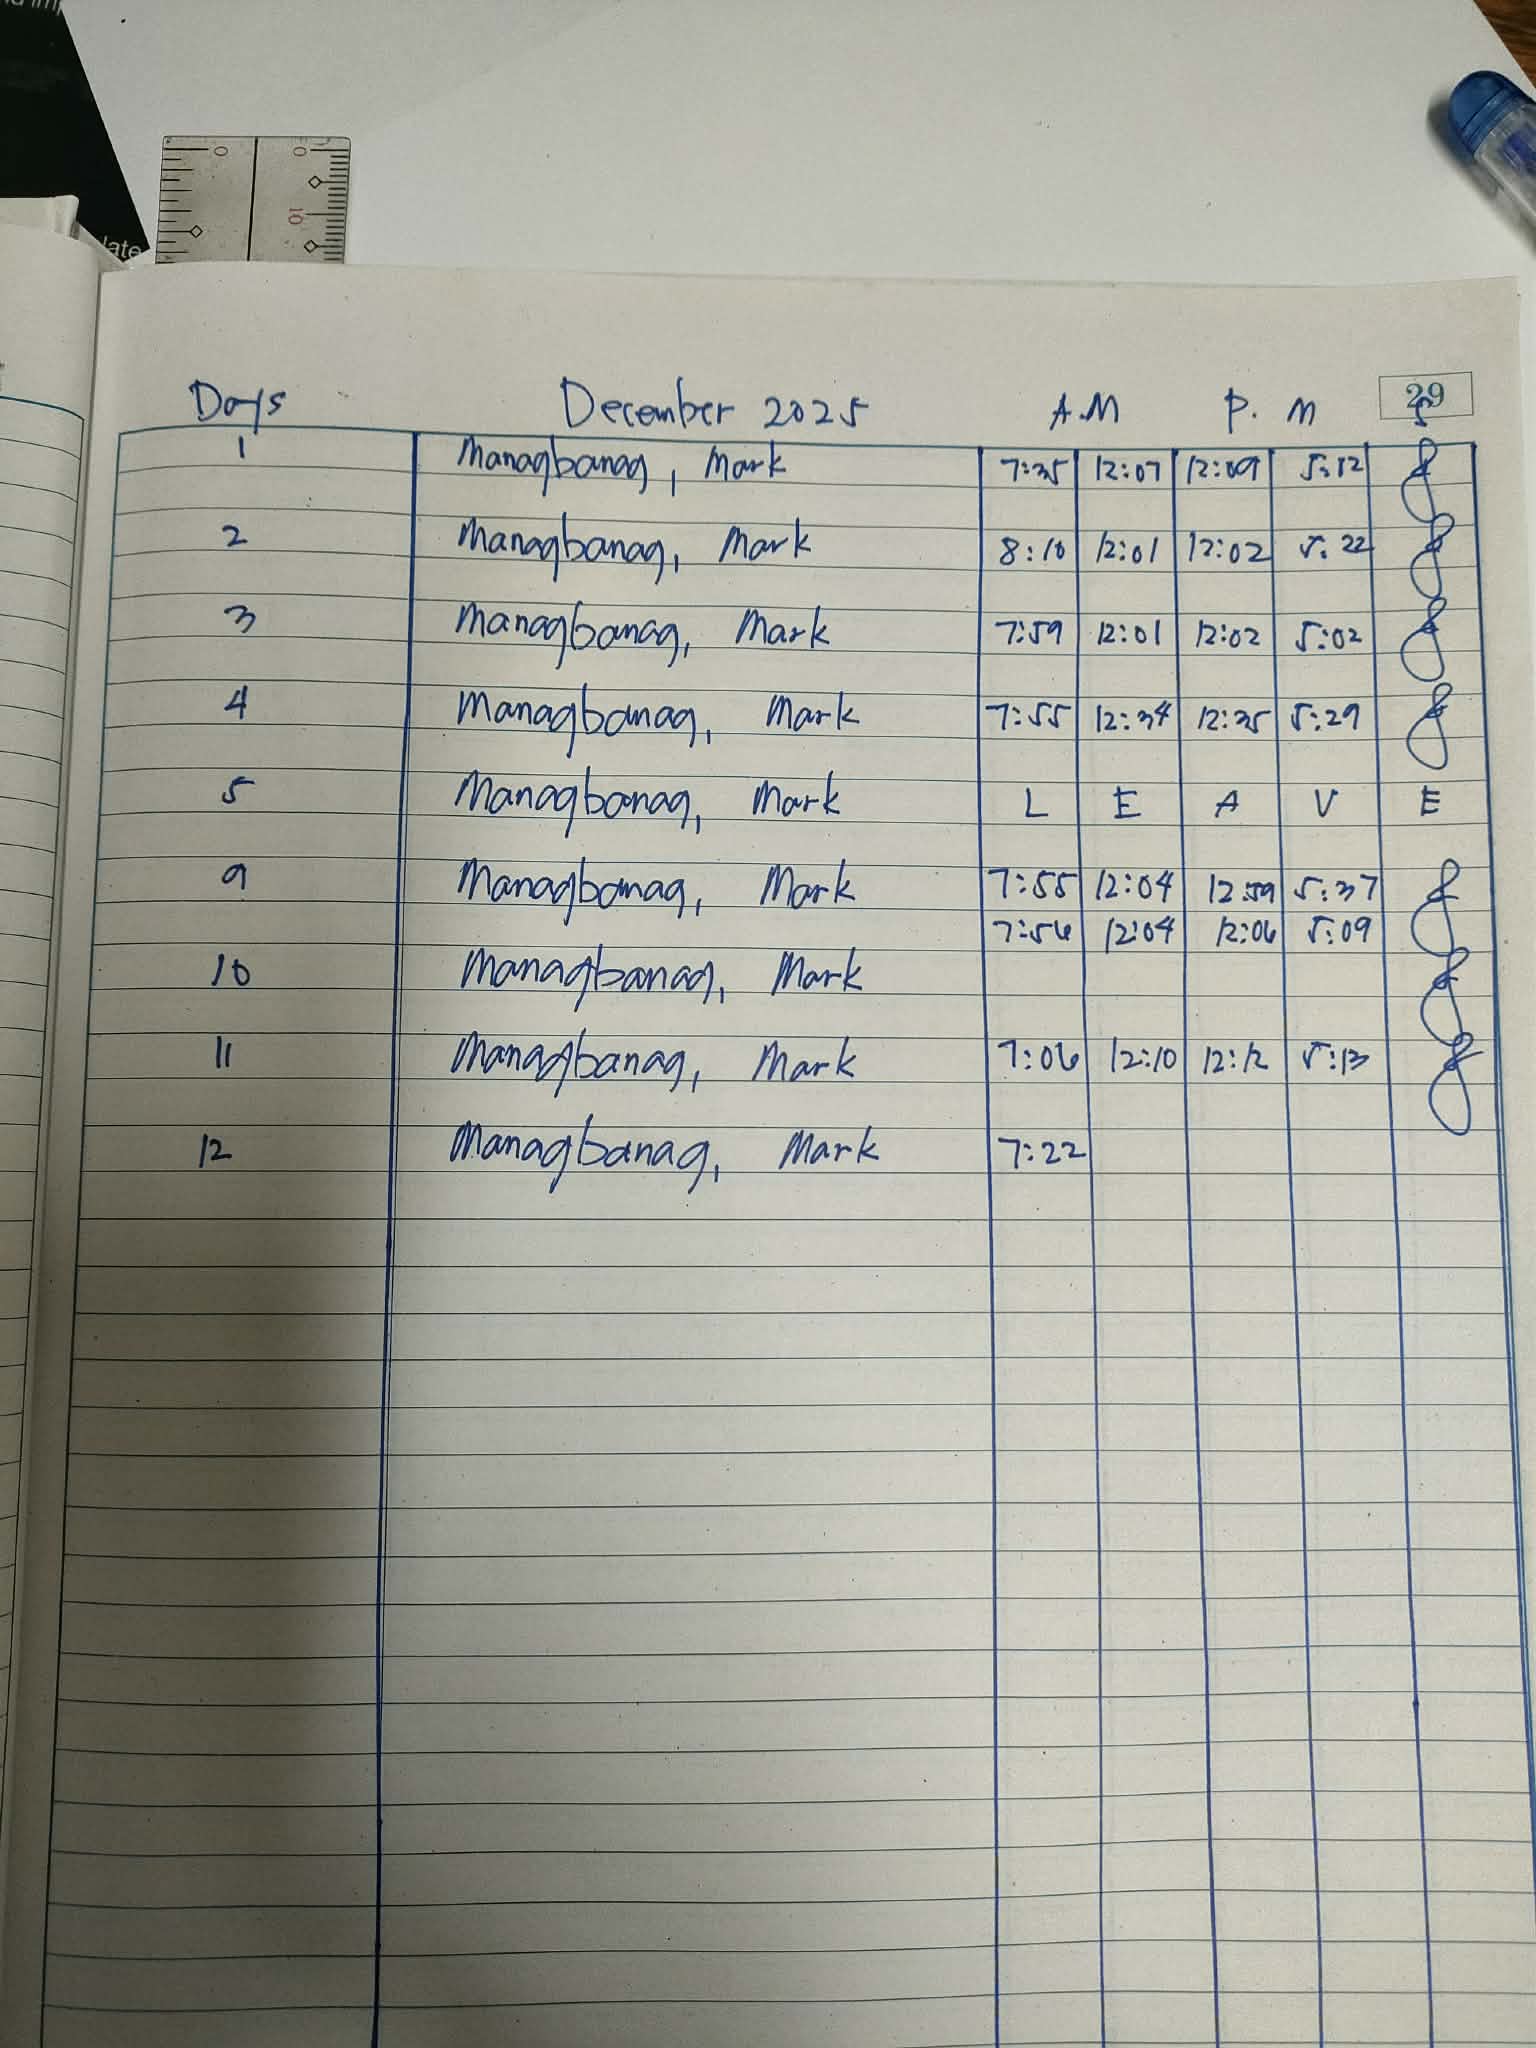 late
0 0
10
Days December 2025 A.M P. M 29
S
1 Managbanag, Mark 7:35 12:07 12:09 5:12
2 Managbanag, Mark 8:10 12:01 12:02 5:22
3 Managbanag, Mark 7:59 12:01 12:02 5:02
4 Managbanag, Mark 7:55 12:34 12:35 5:29
5 Managbanag, Mark L E A V E
9 Managbanag, Mark 7:55 12:04 12:59 5:37
7:56 12:04 12:06 5:09
10 Managbanag, Mark
11 Managbanag, Mark 7:06 12:10 12:12 5:13
12 Managbanag, Mark 7:22